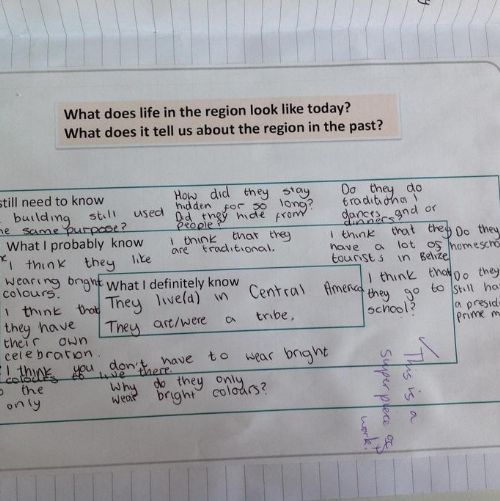 What does life in the region look like today?
What does it tell us about the region in the past?
still need to know
building still used
the same purpose?
How did they stay
hidden for so long?
Did they hide from
people?
Do they do
traditional
dances and or
dinners?
What I probably know
I think they like
wearing bright
colours.
I think that
they have
their own
celebration.
I think that they
are traditional.
I think that they
have a lot of
tourists in Belize
I think that
they go to
school?
Do they
homescho
Do they
still ha
a presid
prime m
What I definitely know
They live(d) in Central America
They are/were a tribe,
I think you don't have to wear bright
colours to live there.
the
only
Why do they only
wear bright colours?
This is a
super piece of
work!